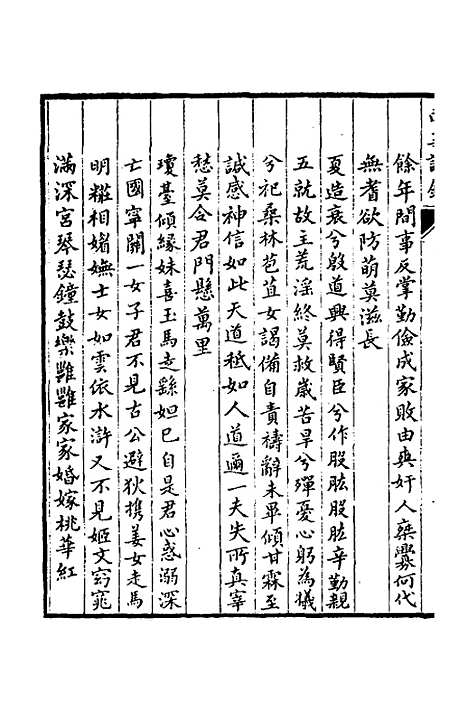 餘年間事反掌勤儉成家敗由爽奸人桀黠何代
無耆欲防萌莫滋長
夏造衰兮殷道興得賢臣兮作股肱股肱辛勤親
五就故主荒淫終莫救歲苦旱兮殫憂心躬為犧
兮祀桑林苞苴女謁備自責禱辭未畢傾甘霖至
誠感神信如此天道秪如人道邇一夫失所真宰
愁莫令君門懸萬里
瓊臺傾緣妹喜玉馬走繇妲已自是君心惑溺深
亡國寧關一女子君不見古公避狄携姜女走馬
明糚相媚嫵士女如雲依水滸又不見姬文窈窕
滿深宮琴瑟鐘鼓樂雝雝家家婚嫁桃華紅